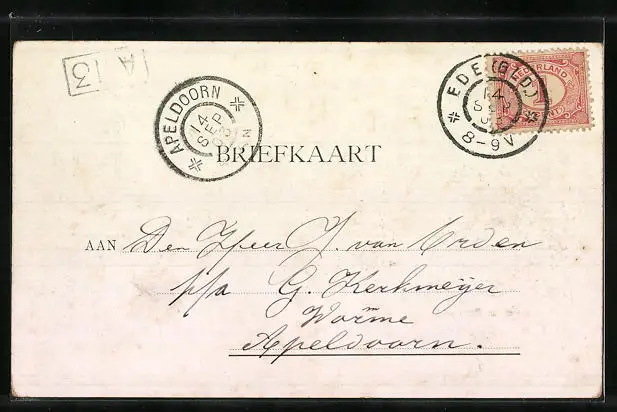 A 3
APELDOORN
14
SEP
EDE (GLD.)
14
SEP
8-9V
NEDERLAND
1
BRIEFKAART
AAN Den Heer J. van Orden
p/a G. Kerkmeijer
Worme
Apeldoorn.